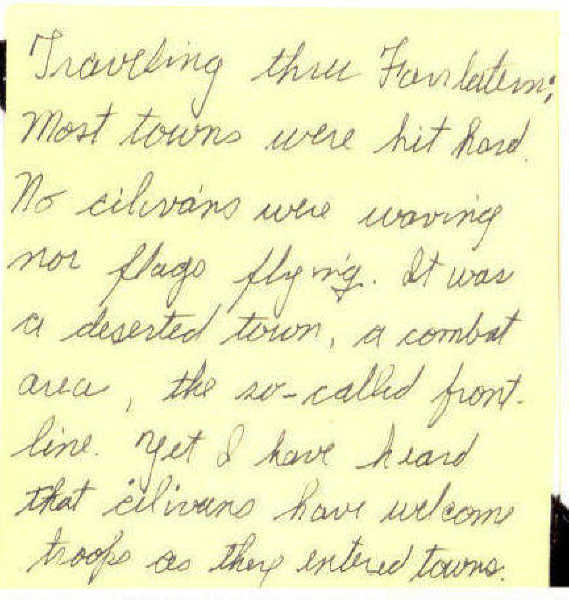 Traveling thru Farrlatern:
Most towns were hit hard.
No cilivans were waving
nor flags flying. It was
a deserted town, a combat
area, the so-called front-
line. Yet I have heard
that cilivans have welcome
troops as they entered towns.